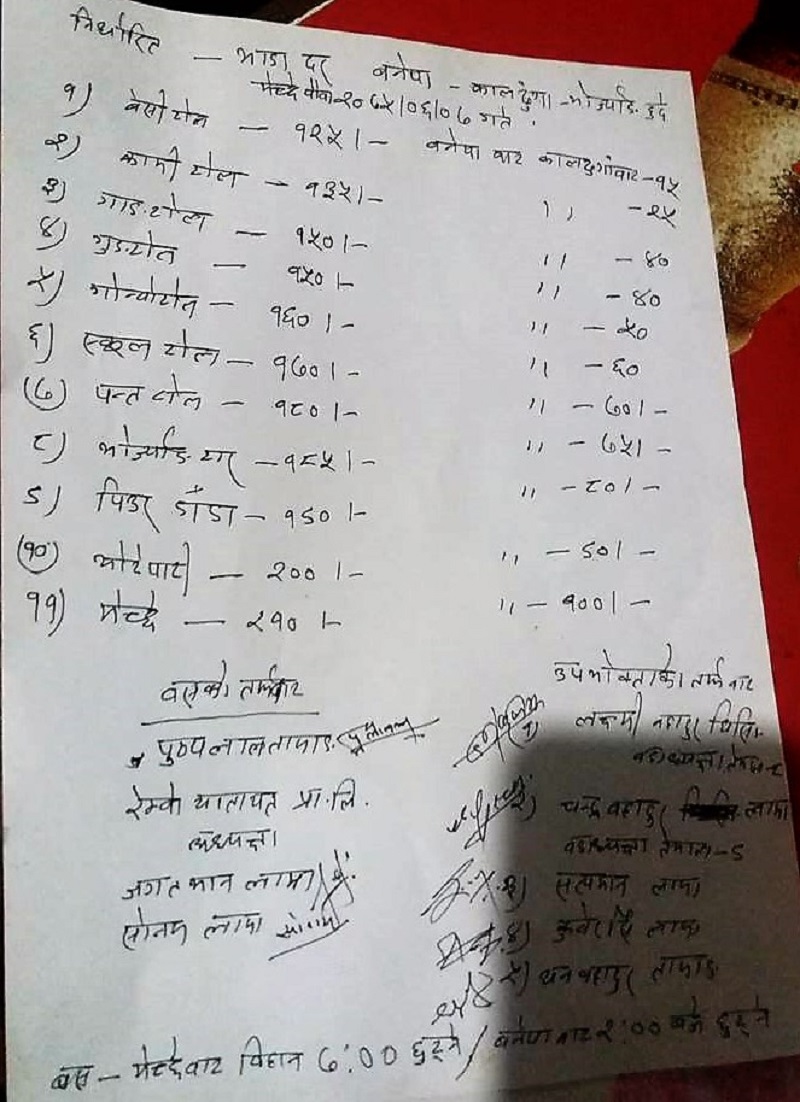 निर्धारित — भाडा दर बनेपा - कालढुंगा - भोर्ज्याङ हुदै
मेच्छे चौक - २०७५/०६/०७ गते.
१) बेसी टोल — १२५।- बनेपा बाट कालढुगांबाट - १५
२) कामी टोल - १३५।- ,, - २५
३) गाङ टोल — १५०।- ,, - ४०
४) गुङ टोल — १५०।- ,, - ४०
५) टोल — १६०।- ,, - ५०
६) स्कूल टोल — १७०।- ,, - ६०
७) पन्त टोल — १८०।- ,, - ७०।-
८) भोर्ज्याङ — १८५।- ,, - ७५।-
९) पिडर डाँडा — १९०।- ,, - ८०।-
१०) भोटेपाटी — २००।- ,, - ९०।-
११) मेच्छे — २१०।- ,, - १००।-
बसको तर्फबाट
पुष्पलाल तामाङ
रेम्के यातायत प्रा.लि.
अध्यक्ष
जगत मान लामा
सोनम लामा
उपभोक्ताको तर्फबाट
१) लक्ष्मी बहादुर
वडाध्यक्ष तेमाल-८
२) चन्द्र बहादुर लामा
वडाध्यक्ष तेमाल-९
३) सत्यमान लामा
४) लामा
५) धन बहादुर तामाङ
बस - मेच्छेबाट विहान ७:०० छुट्ने / बनेपा बाट २:०० बजे छुट्ने